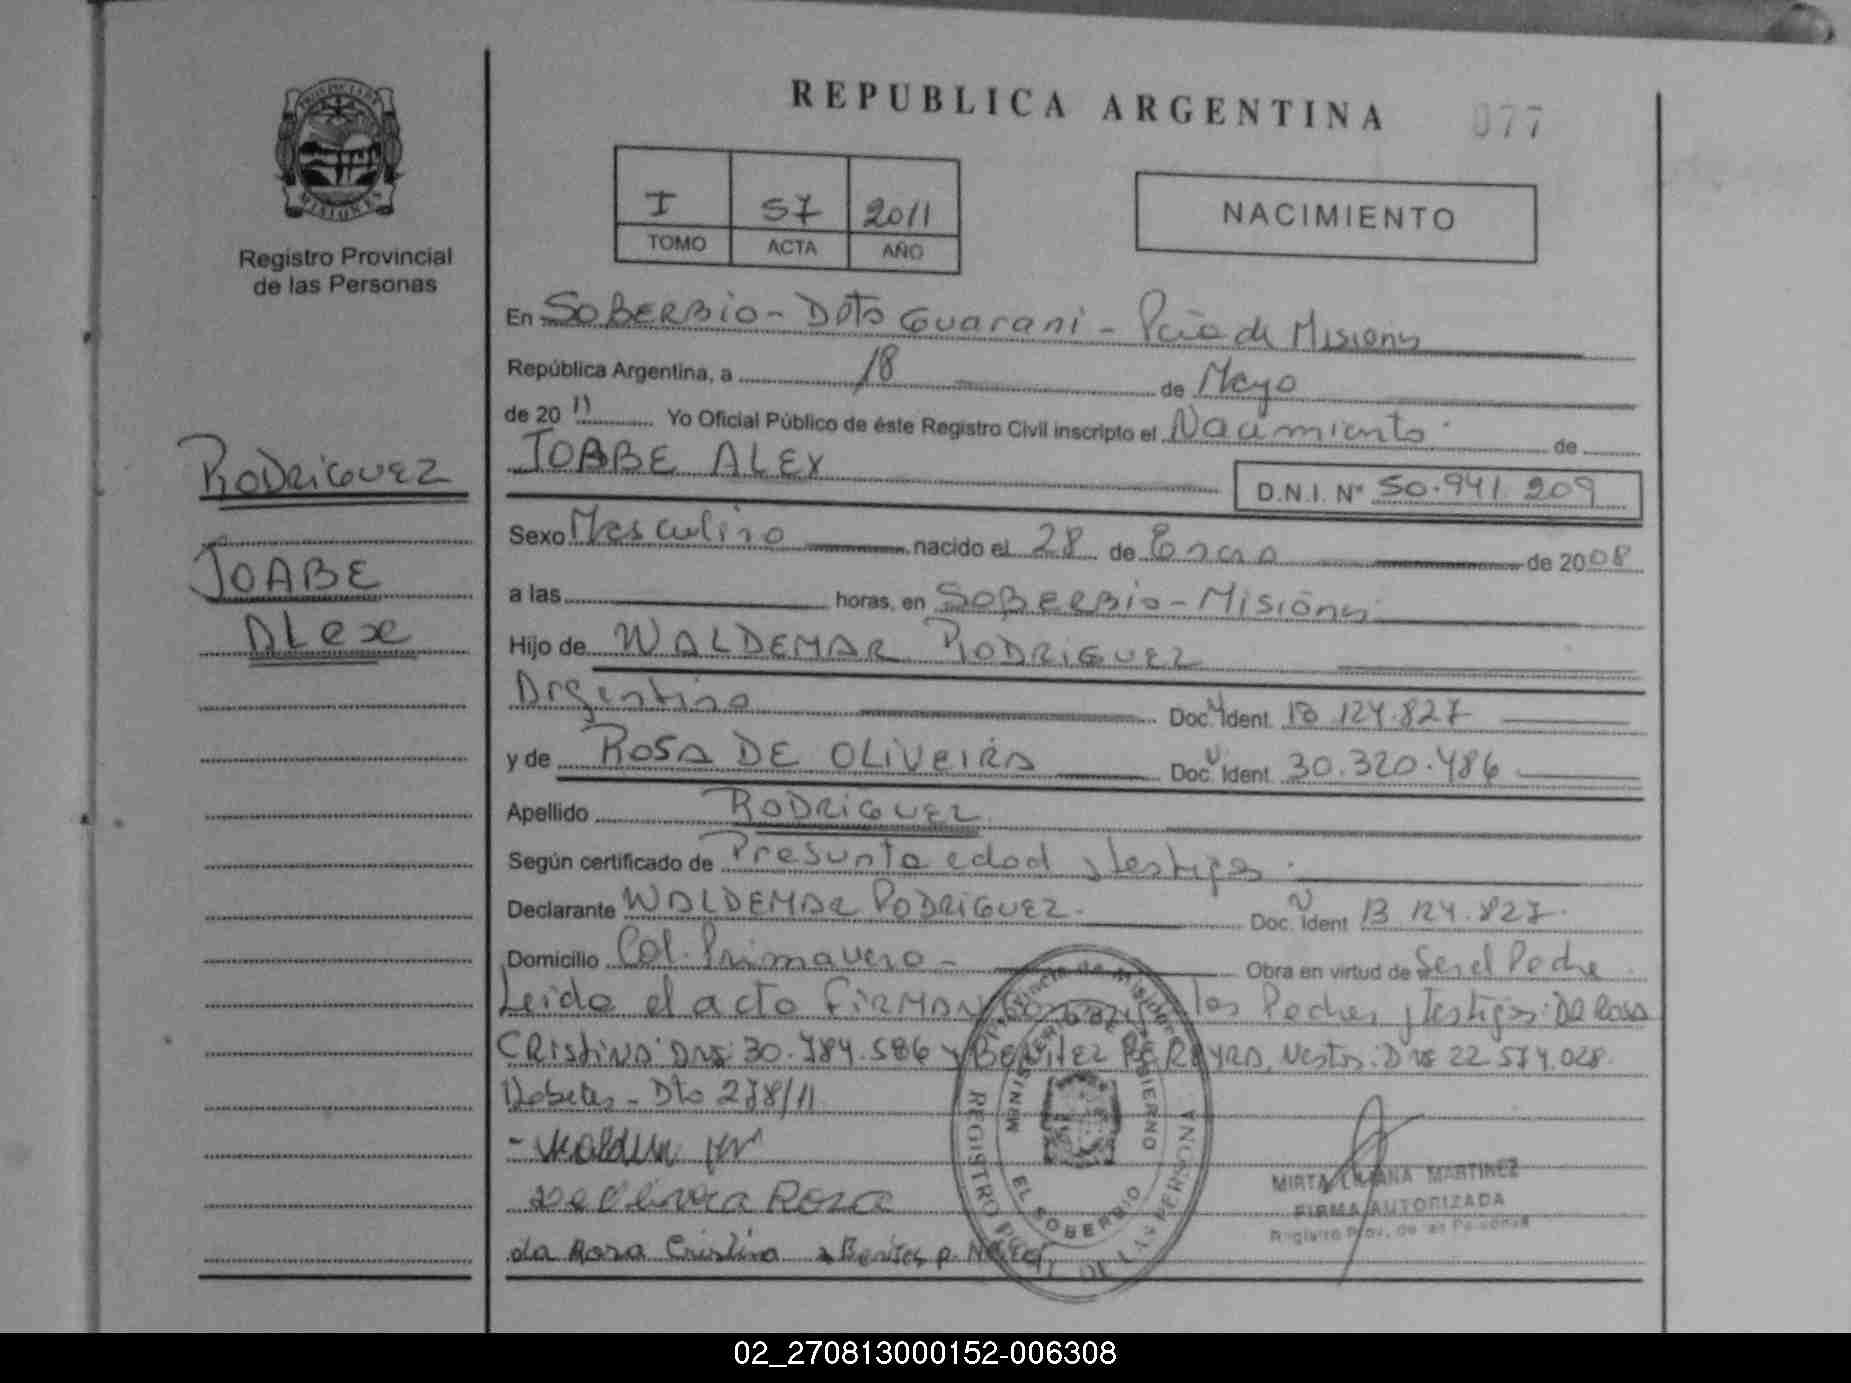 REPUBLICA ARGENTINA
077
PROVINCIA DE
MISIONES
Registro Provincial
de las Personas
I 57 2011
TOMO ACTA AÑO
NACIMIENTO
Rodriguez
JOABE
ALex
En SOBERBIO - Dpto Guarani - Pcia de Misiones
República Argentina, a 18 de Mayo
de 2011 Yo Oficial Público de éste Registro Civil inscripto el Nacimiento de
JOABE ALEX
D.N.I. N° 50.941.209
Sexo Masculino nacido el 28 de Enero de 2008
a las horas, en SOBERBIO - Misiones
Hijo de WALDEMAR RODRIGUEZ
Argentino Doc. Ident. 13.124.827
y de ROSA DE OLIVEIRA Doc. Ident. 30.320.486
Apellido RODRIGUEZ
Según certificado de Presunta edad y testigos
Declarante WALDEMAR RODRIGUEZ Doc. Ident 13.124.827
Domicilio Col. Primavera - Obra en virtud de Ser el Padre
Leido el acta FIRMAN los Padres y testigos: DA ROSA
CRISTINA: DNI: 30.784.586 y BENITEZ PEREYRA, DNI 22.574.028
Dto 278/11
De Oliveira Rosa
da Rosa Cristina
Provincia de Misiones
MINISTERIO DE GOBIERNO
REGISTRO PCIAL. DE LAS PERSONAS
EL SOBERBIO
MIRTA LILIANA MARTINEZ
FIRMA AUTORIZADA
Registro Prov. de las Personas
02_270813000152-006308